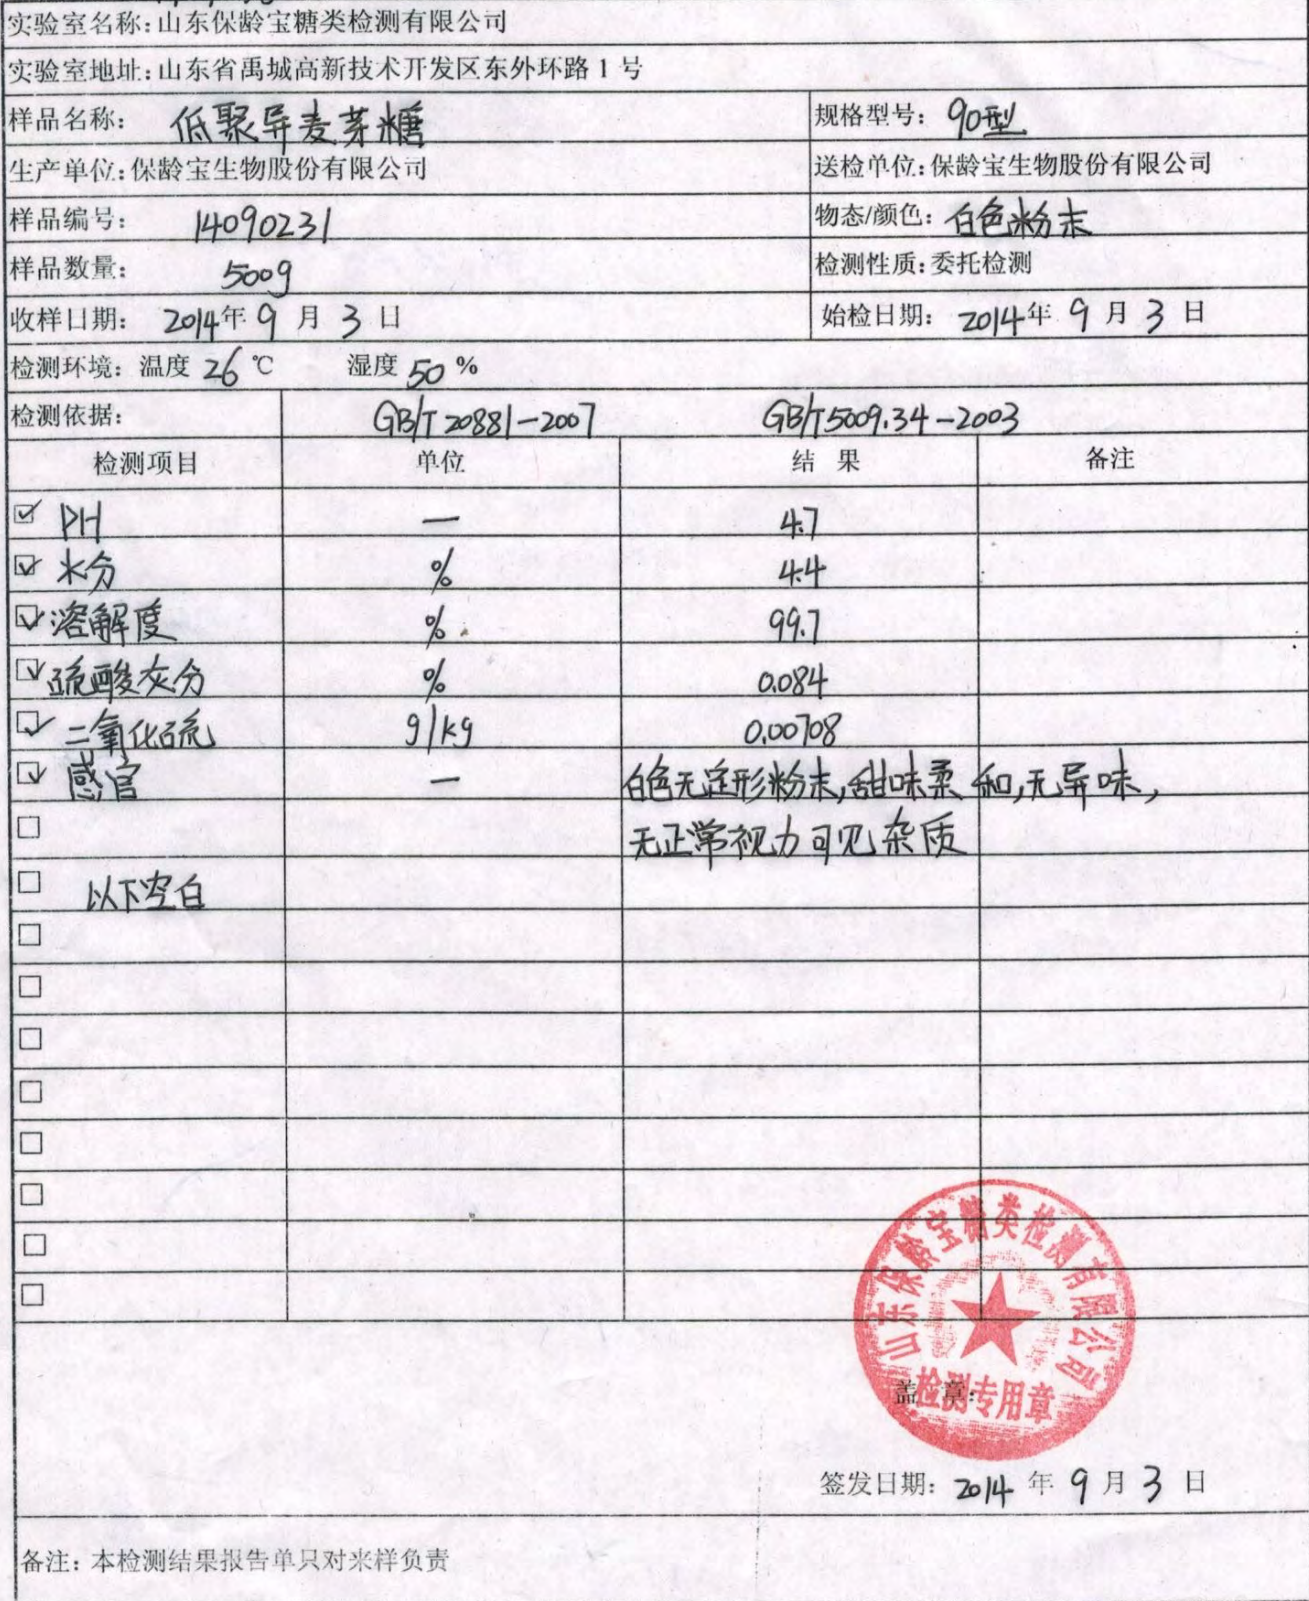 实验室名称:山东保龄宝糖类检测有限公司
实验室地址:山东省禹城高新技术开发区东外环路 1 号
样品名称: 低聚异麦芽糖 规格型号: 90型
生产单位:保龄宝生物股份有限公司 送检单位:保龄宝生物股份有限公司
样品编号: 14090231 物态/颜色: 白色粉末
样品数量: 500g 检测性质:委托检测
收样日期: 2014年 9 月 3 日 始检日期: 2014年 9 月 3 日
检测环境: 温度 26 ℃ 湿度 50 %
检测依据: GB/T 20881-2007 GB/T5009.34-2003
检测项目 单位 结 果 备注
☑ PH — 4.7
☑ 水分 % 4.4
☑ 溶解度 % 99.7
☑ 硫酸灰分 % 0.084
☑ 二氧化硫 g/kg 0.00708
☑ 感官 — 白色无定形粉末,甜味柔和,无异味,
无正常视力可见杂质
以下空白
山东保龄宝糖类检测有限公司
盖 章:
检测专用章
签发日期: 2014 年 9 月 3 日
备注: 本检测结果报告单只对来样负责